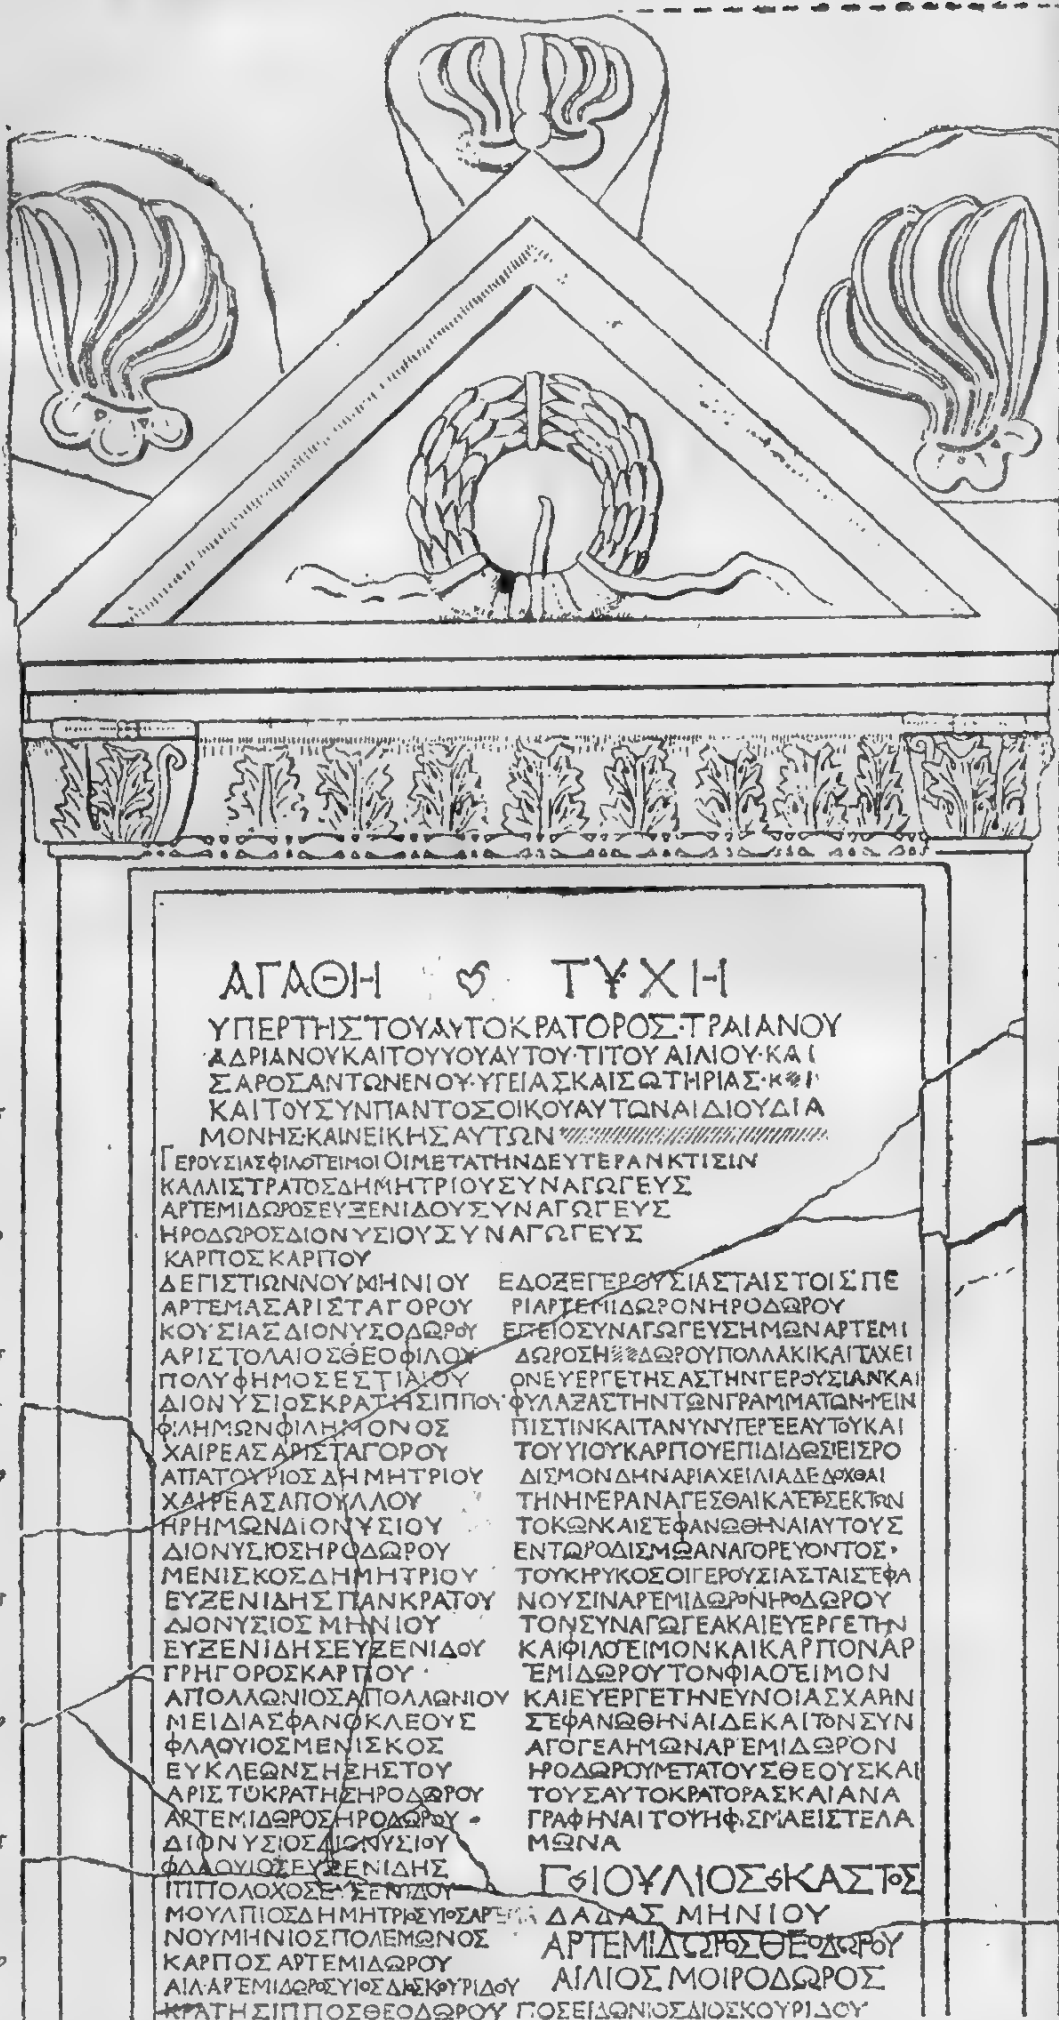 ΑΓΑΘΗ ΤΥΧΗ
ΥΠΕΡΤΗΣΤΟΥΑΥΤΟΚΡΑΤΟΡΟΣ·ΤΡΑΙΑΝΟΥ
ΑΔΡΙΑΝΟΥΚΑΙΤΟΥΥΟΥΑΥΤΟΥ·ΤΙΤΟΥΑΙΛΙΟΥ·ΚΑΙ
ΣΑΡΟΣΑΝΤΩΝΕΝΟΥ·ΥΓΕΙΑΣΚΑΙΣΩΤΗΡΙΑΣ·
ΚΑΙΤΟΥΣΥΝΠΑΝΤΟΣΟΙΚΟΥΑΥΤΩΝΑΙΔΙΟΥΔΙΑ
ΜΟΝΗΣ·ΚΑΙΝΕΙΚΗΣΑΥΤΩΝ
ΓΕΡΟΥΣΙΑΣΦΙΛΟΤΕΙΜΟΙΟΙΜΕΤΑΤΗΝΔΕΥΤΕΡΑΝΚΤΙΣΙΝ
ΚΑΛΛΙΣΤΡΑΤΟΣΔΗΜΗΤΡΙΟΥΣΥΝΑΓΩΓΕΥΣ
ΑΡΤΕΜΙΔΩΡΟΣΕΥΞΕΝΙΔΟΥΣΥΝΑΓΩΓΕΥΣ
ΗΡΟΔΩΡΟΣΔΙΟΝΥΣΙΟΥΣΥΝΑΓΩΓΕΥΣ
ΚΑΡΠΟΣΚΑΡΠΟΥ
ΔΕΓΙΣΤΙΩΝΝΟΥΜΗΝΙΟΥ
ΑΡΤΕΜΑΣΑΡΙΣΤΑΓΟΡΟΥ
ΚΟΥΣΙΑΣΔΙΟΝΥΣΟΔΩΡΟΥ
ΑΡΙΣΤΟΛΑΙΟΣΘΕΟΦΙΛΟΥ
ΠΟΛΥΦΗΜΟΣΕΣΤΙΑΙΟΥ
ΔΙΟΝΥΣΙΟΣΚΡΑΤΗΣΙΠΠΟΥ
ΦΙΛΗΜΩΝΦΙΛΗΜΟΝΟΣ
ΧΑΙΡΕΑΣΑΡΙΣΤΑΓΟΡΟΥ
ΑΠΑΤΟΥΡΙΟΣΔΗΜΗΤΡΙΟΥ
ΧΑΙΡΕΑΣΑΠΟΥΛΛΟΥ
ΗΡΗΜΩΝΔΙΟΝΥΣΙΟΥ
ΔΙΟΝΥΣΙΟΣΗΡΟΔΩΡΟΥ
ΜΕΝΙΣΚΟΣΔΗΜΗΤΡΙΟΥ
ΕΥΞΕΝΙΔΗΣΠΑΝΚΡΑΤΟΥ
ΔΙΟΝΥΣΙΟΣΜΗΝΙΟΥ
ΕΥΞΕΝΙΔΗΣΕΥΞΕΝΙΔΟΥ
ΓΡΗΓΟΡΟΣΚΑΡΠΟΥ
ΑΠΟΛΛΩΝΙΟΣΑΠΟΛΛΩΝΙΟΥ
ΜΕΙΔΙΑΣΦΑΝΟΚΛΕΟΥΣ
ΦΛΑΟΥΙΟΣΜΕΝΙΣΚΟΣ
ΕΥΚΛΕΩΝΣΗΞΗΣΤΟΥ
ΑΡΙΣΤΟΚΡΑΤΗΣΗΡΟΔΩΡΟΥ
ΑΡΤΕΜΙΔΩΡΟΣΗΡΟΔΩΡΟΥ
ΔΙΟΝΥΣΙΟΣΔΙΟΝΥΣΙΟΥ
ΦΛΑΟΥΙΟΣΕΥΞΕΝΙΔΗΣ
ΙΠΠΟΛΟΧΟΣΕΥΞΕΝΙΔΟΥ
ΜΟΥΛΠΙΟΣΔΗΜΗΤΡΙΟΣΥΙΟΣΑΡΤΕΜΑ
ΝΟΥΜΗΝΙΟΣΠΟΛΕΜΩΝΟΣ
ΚΑΡΠΟΣΑΡΤΕΜΙΔΩΡΟΥ
ΑΙΛ·ΑΡΤΕΜΙΔΩΡΟΣΥΙΟΣΔΙΟΣΚΟΥΡΙΔΟΥ
ΚΡΑΤΗΣΙΠΠΟΣΘΕΟΔΩΡΟΥ
ΕΔΟΞΕΓΕΡΟΥΣΙΑΣΤΑΙΣΤΟΙΣΠΕ
ΡΙΑΡΤΕΜΙΔΩΡΟΝΗΡΟΔΩΡΟΥ
ΕΠΕΙΟΣΥΝΑΓΩΓΕΥΣΗΜΩΝΑΡΤΕΜΙ
ΔΩΡΟΣΗ ΔΩΡΟΥΠΟΛΛΑΚΙΚΑΙΤΑΧΕΙ
ΟΝΕΥΕΡΓΕΤΗΣΑΣΤΗΝΓΕΡΟΥΣΙΑΝΚΑΙ
ΦΥΛΑΞΑΣΤΗΝΤΩΝΓΡΑΜΜΑΤΩΝ·ΜΕΙΝ
ΠΙΣΤΙΝΚΑΙΤΑΝΥΝΥΠΕΡΤΕΕΑΥΤΟΥΚΑΙ
ΤΟΥΥΙΟΥΚΑΡΠΟΥΕΠΙΔΙΔΩΣΙΕΙΣΡΟ
ΔΙΣΜΟΝΔΗΝΑΡΙΑΧΕΙΛΙΑΔΕΔΟΧΘΑΙ
ΤΗΝΗΜΕΡΑΝΑΓΕΣΘΑΙΚΑΤΕΤΟΣΕΚΤΩΝ
ΤΟΚΩΝΚΑΙΣΤΕΦΑΝΩΘΗΝΑΙΑΥΤΟΥΣ
ΕΝΤΩΡΟΔΙΣΜΩΑΝΑΓΟΡΕΥΟΝΤΟΣ·
ΤΟΥΚΗΡΥΚΟΣΟΙΓΕΡΟΥΣΙΑΣΤΑΙΣΤΕΦΑ
ΝΟΥΣΙΝΑΡΤΕΜΙΔΩΡΟΝΗΡΟΔΩΡΟΥ
ΤΟΝΣΥΝΑΓΩΓΕΑΚΑΙΕΥΕΡΓΕΤΗΝ
ΚΑΙΦΙΛΟΤΕΙΜΟΝΚΑΙΚΑΡΠΟΝΑΡ
ΤΕΜΙΔΩΡΟΥΤΟΝΦΙΛΟΤΕΙΜΟΝ
ΚΑΙΕΥΕΡΓΕΤΗΝΕΥΝΟΙΑΣΧΑΡΙΝ
ΣΤΕΦΑΝΩΘΗΝΑΙΔΕΚΑΙΤΟΝΣΥΝ
ΑΓΟΓΕΑΗΜΩΝΑΡΤΕΜΙΔΩΡΟΝ
ΗΡΟΔΩΡΟΥΜΕΤΑΤΟΥΣΘΕΟΥΣΚΑΙ
ΤΟΥΣΑΥΤΟΚΡΑΤΟΡΑΣΚΑΙΑΝΑ
ΓΡΑΦΗΝΑΙΤΟΨΗΦΙΣΜΑΕΙΣΤΕΛΑ
ΜΩΝΑ
ΓΙΟΥΛΙΟΣΚΑΣΤΟΣ
ΔΑΔΑΣΜΗΝΙΟΥ
ΑΡΤΕΜΙΔΩΡΟΣΘΕΟΔΩΡΟΥ
ΑΙΛΙΟΣΜΟΙΡΟΔΩΡΟΣ
ΠΟΣΕΙΔΩΝΙΟΣΔΙΟΣΚΟΥΡΙΔΟΥ